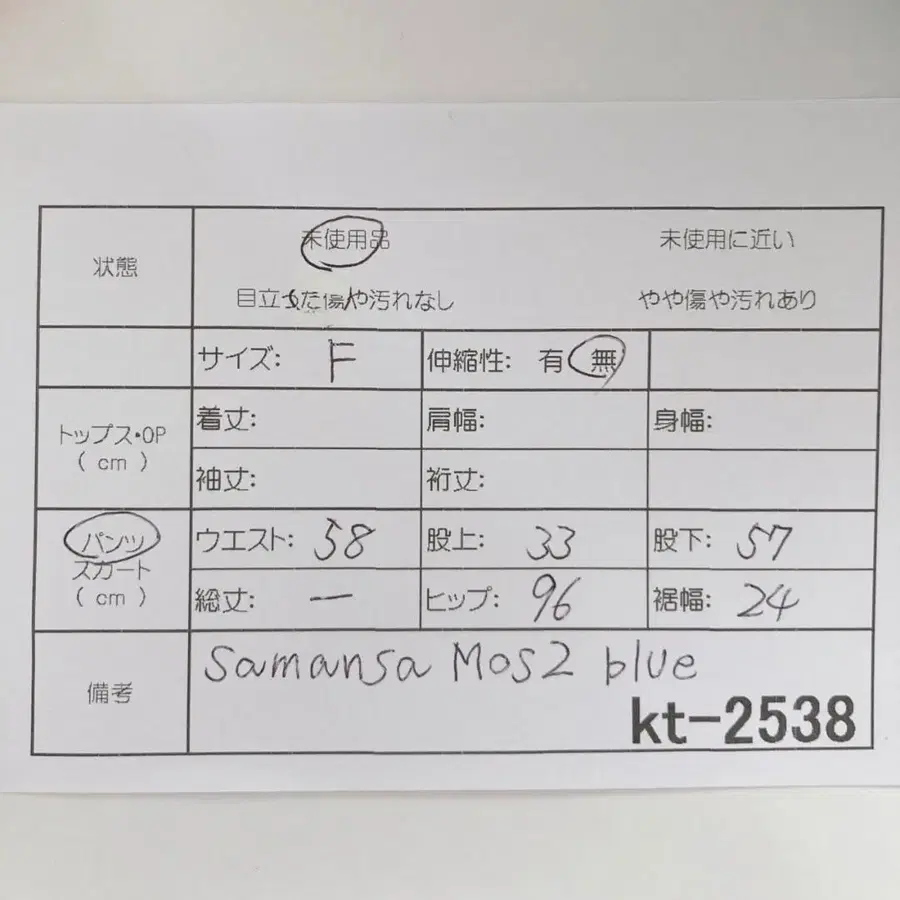 状態 未使用品 未使用に近い
目立った傷や汚れなし やや傷や汚れあり
サイズ: F 伸縮性: 有 無
トップス・OP
( cm )
着丈: 肩幅: 身幅:
袖丈: 裄丈:
パンツ
スカート
( cm )
ウエスト: 58 股上: 33 股下: 57
総丈: ー ヒップ: 96 裾幅: 24
備考
Samansa Mos2 blue
kt-2538